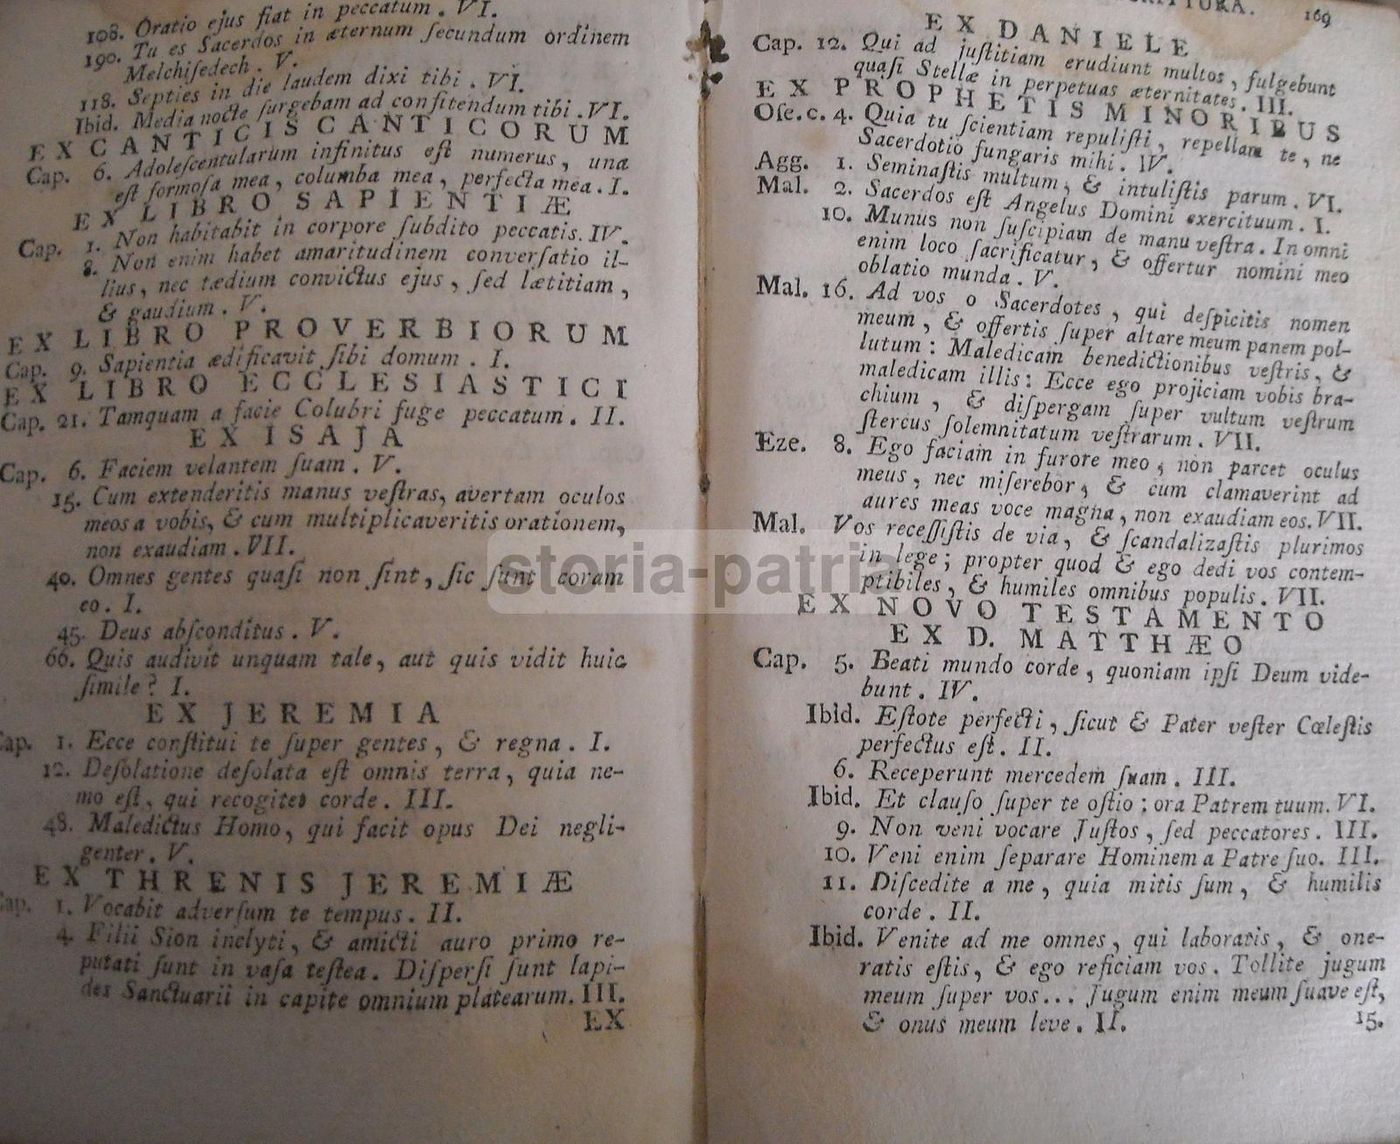 108. Oratio ejus fiat in peccatum . VI.
190. Tu es Sacerdos in æternum ſecundum ordinem
Melchiſedech . V.
118. Septies in die laudem dixi tibi . VI.
Ibid. Media nocte ſurgebam ad confitendum tibi . VI.
EX CANTICIS CANTICORUM
Cap. 6. Adoleſcentularum infinitus eſt numerus, una
eſt formoſa mea, columba mea, perfecta mea . I.
EX LIBRO SAPIENTIÆ
Cap. 1. Non habitabit in corpore ſubdito peccatis. IV.
8. Non enim habet amaritudinem converſatio il-
lius, nec tædium convictus ejus, ſed lætitiam,
& gaudium . V.
EX LIBRO PROVERBIORUM
Cap. 9. Sapientia ædificavit ſibi domum . I.
EX LIBRO ECCLESIASTICI
Cap. 21. Tamquam a facie Colubri fuge peccatum. II.
EX ISAJA
Cap. 6. Faciem velantem ſuam . V.
15. Cum extenderitis manus veſtras, avertam oculos
meos a vobis, & cum multiplicaveritis orationem,
non exaudiam . VII.
40. Omnes gentes quaſi non ſint, ſic ſunt coram
eo . I.
45. Deus abſconditus . V.
66. Quis audivit unquam tale, aut quis vidit huic
ſimile? I.
EX JEREMIA
Cap. 1. Ecce conſtitui te ſuper gentes, & regna . I.
12. Deſolatione deſolata eſt omnis terra, quia ne-
mo eſt, qui recogitet corde . III.
48. Maledictus Homo, qui facit opus Dei negli-
genter . V.
EX THRENIS JEREMIÆ
Cap. 1. Vocabit adverſum te tempus . II.
4. Filii Sion inclyti, & amicti auro primo re-
putati ſunt in vaſa teſtea. Diſperſi ſunt lapi-
des Sanctuarii in capite omnium platearum. III.
EX
169
EX DANIELE
Cap. 12. Qui ad juſtitiam erudiunt multos, fulgebunt
quaſi Stellæ in perpetuas æternitates. III.
EX PROPHETIS MINORIBUS
Oſe. c. 4. Quia tu ſcientiam repuliſti, repellam te, ne
Sacerdotio fungaris mihi . IV.
Agg. 1. Seminaſtis multum, & intuliſtis parum . VI.
Mal. 2. Sacerdos eſt Angelus Domini exercituum . I.
10. Munus non ſuſcipiam de manu veſtra. In omni
enim loco ſacrificatur, & offertur nomini meo
oblatio munda . V.
Mal. 16. Ad vos o Sacerdotes, qui deſpicitis nomen
meum, & offertis ſuper altare meum panem pol-
lutum : Maledicam benedictionibus veſtris, &
maledicam illis: Ecce ego projiciam vobis bra-
chium, & diſpergam ſuper vultum veſtrum
ſtercus ſolemnitatum veſtrarum . VII.
Eze. 8. Ego faciam in furore meo, non parcet oculus
meus, nec miſerebor, & cum clamaverint ad
aures meas voce magna, non exaudiam eos. VII.
Mal. Vos receſſiſtis de via, & ſcandalizaſtis plurimos
in lege; propter quod & ego dedi vos contem-
ptibiles, & humiles omnibus populis . VII.
EX NOVO TESTAMENTO
EX D. MATTHÆO
Cap. 5. Beati mundo corde, quoniam ipſi Deum vide-
bunt . IV.
Ibid. Eſtote perfecti, ſicut & Pater veſter Cœleſtis
perfectus eſt . II.
6. Receperunt mercedem ſuam . III.
Ibid. Et clauſo ſuper te oſtio : ora Patrem tuum. VI.
9. Non veni vocare Juſtos, ſed peccatores . III.
10. Veni enim ſeparare Hominem a Patre ſuo. III.
11. Diſcedite a me, quia mitis ſum, & humilis
corde . II.
Ibid. Venite ad me omnes, qui laboratis, & one-
ratis eſtis, & ego reficiam vos . Tollite jugum
meum ſuper vos... Jugum enim meum ſuave eſt,
& onus meum leve . II.
15.
storia-patria